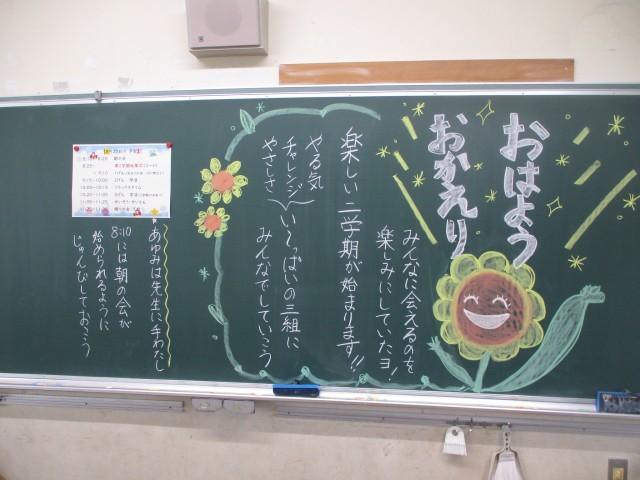 おはよう
おかえり
みんなに会えるのを
楽しみにしていたヨ!
楽しい二学期が始まります!!
やる気
チャレンジ
やさしさ
い〜っぱいの三組に
みんなでしていこう
あゆみは先生に手わたし
8:10には朝の会が
始められるように
じゅんびしておこう